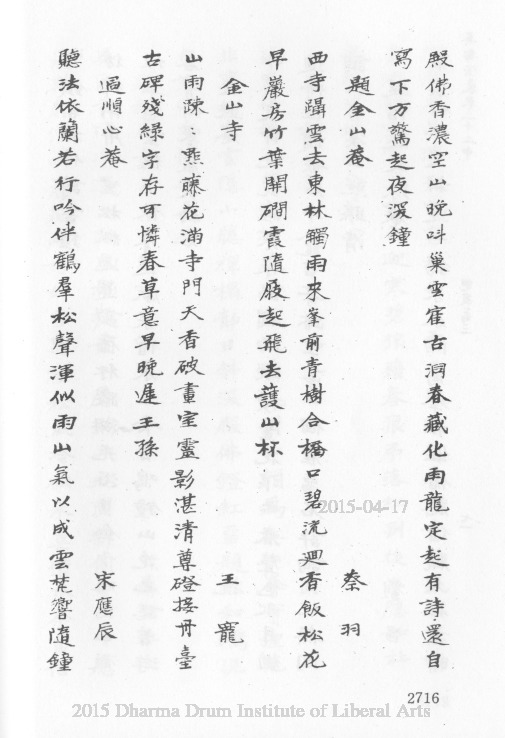 殿佛香濃空山晚叫巢雲寉古洞春藏化雨龍定起有詩還自
寫下方驚起夜深鐘
題金山菴 蔡羽
西寺躡雲去東林觸雨來峯前青樹合橋口碧流迴香飯松花
早巖房竹葉開磵霞隨屐起飛去護山杯
金山寺 王寵
山雨疎：點藤花滿寺門天香破畫室靈影湛清尊磴接丹臺
古碑殘綠字存可憐春草意早晚遲王孫
過順心菴 宋應辰
聽法依蘭若行吟伴鶴羣松聲渾似雨山氣以成雲梵響隨鐘
2015-04-17
2716
2015 Dharma Drum Institute of Liberal Arts